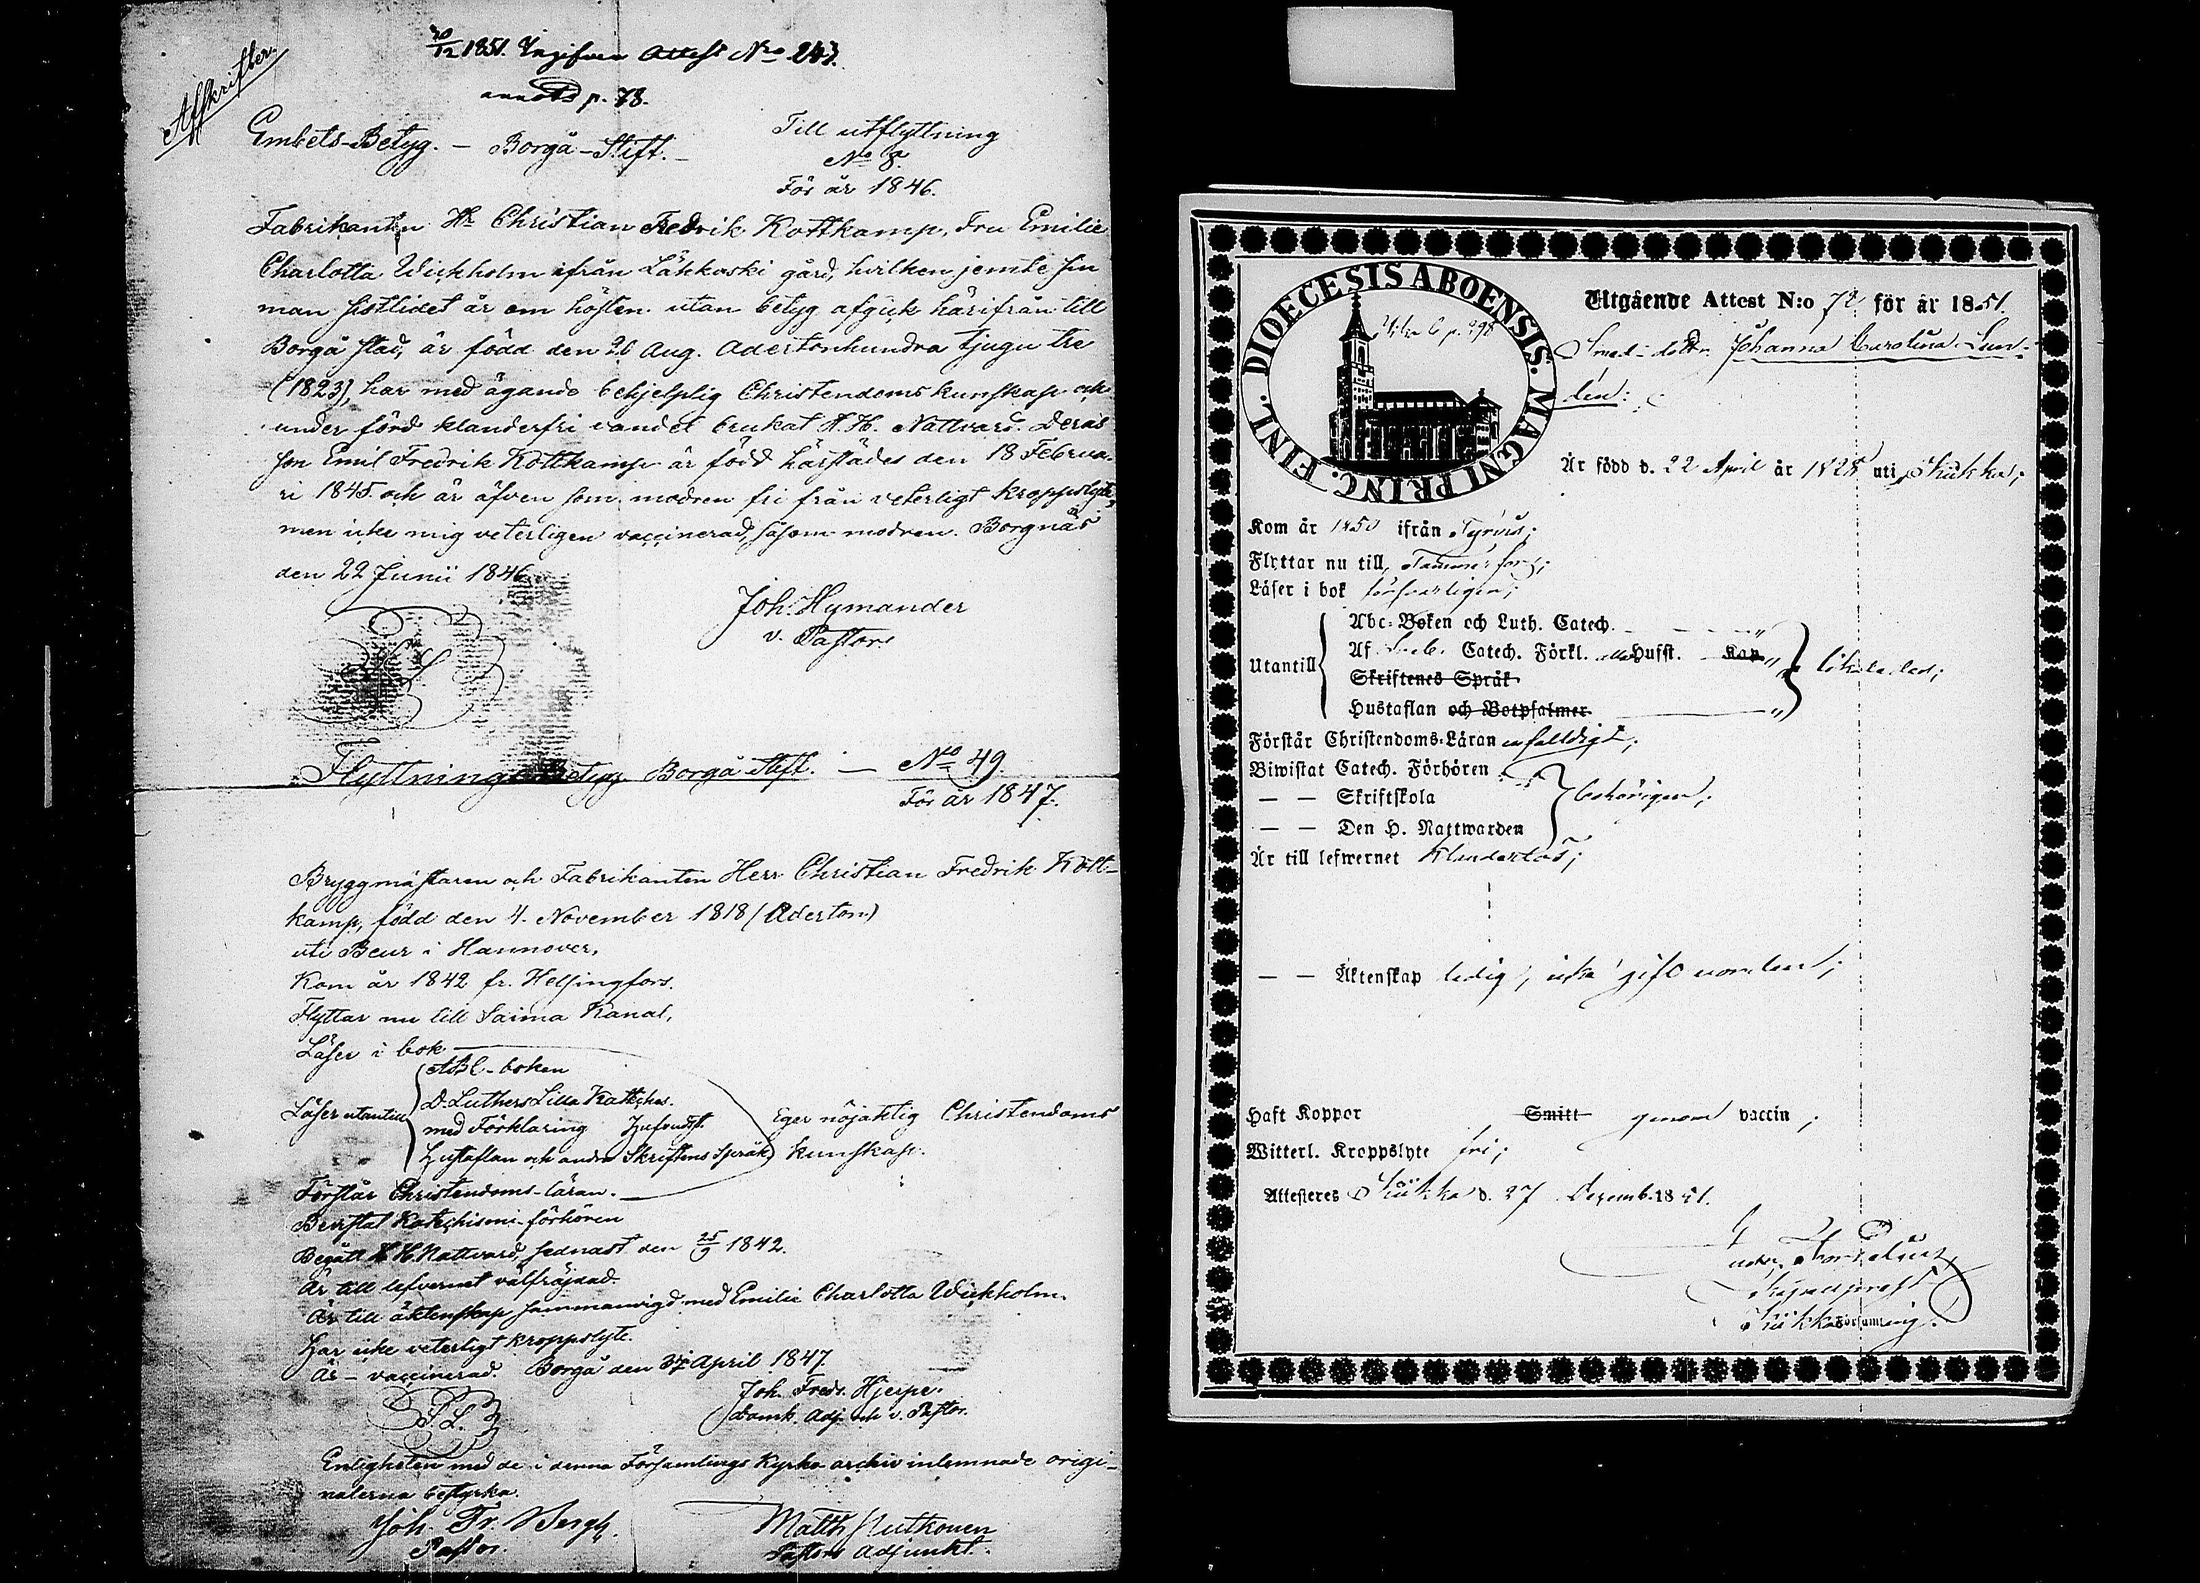 Afskrifter.
30/12 1851. Ingifven Attest No 247.
annoto p. 78.
Embets-Betyg. – Borgå-Stift. –
Till utflyttning
No 8.
För år 1846.
Fabrikanten Hr Christian Fredrik Kottkamp, Fru Emilie
Charlotta Wickholm ifrån Läkkoski gård, hvilken jemte sin
man sistlidet år om hösten utan betyg afgick härifrån till
Borgå stad, är född den 26 Aug. Adertonhundra tjugu tre
(1823), har med ägande behjelplig Christendoms kunskap och
under förd klanderfri vandel brukat H. H. Nattvard. Deras
son Emil Fredrik Kottkamp är född härstädes den 18 Februa-
ri 1845 och är äfven som modren fri från veterligt kroppslyte,
men icke mig veterligen vaccinerad, såsom modren. Borgnäs
den 22 Junii 1846.
Joh. Hymander
v. Pastor.
L S
Flyttnings-Betyg Borgå Stift. — No 49.
För år 1847.
Bryggmästaren och Fabrikanten Herr Christian Fredrik Kott-
kamp, född den 4. November 1818 (Aderton)
uti Beur i Hannover.
Kom år 1842 fr. Helsingfors.
Flyttar nu till Saima Kanal.
Läser i bok
Läser utantill
ABC-boken
D. Luthers Lilla Katekes.
med Förklaring Hufvudst.
Hustaflan och andra Skriftens Språk
Eger nöjaktig Christendoms
kunskap.
Förstår Christendoms-läran.
Bevistat Katechismi-förhören
Begått H. H. Nattvard, sednast den 25/9 1842.
Är till lefvernet välfräjdad.
Är till äktenskap sammanvigd med Emilie Charlotta Wickholm.
Har icke veterligt kroppslyte.
Är – vaccinerad. Borgå den 37 April 1847.
L. S.
Joh. Fredr. Hjerpe.
Domk. Adj. och v. Pastor.
Enligheten med de i denna Församlings Kyrko archiv inlemnade origi-
nalerna bestyrka.
Joh. Fr. Bergh.
Pastor.
Matth. Hutkonen
Pastors Adjunkt.
DIOECESIS ABOENSIS. MAGNI PRINC. FINL.
Utgående Attest N:o 72 för år 1851.
Smed-dottr. Johanna Carolina Lun-
den:
Är född d. 22 April år 1828 uti Kiikka;
Kom år 1850 ifrån Tyrvis;
Flyttar nu till Tammerfors;
Läser i bok försvarligen;
Utantill
Abc-Boken och Luth. Catech.
Af Sveb. Catech. Förkl. alla Hufst. Kap.
Skriftenes Språk
Hustaflan och Botpsalmer
likaledes;
Förstår Christendoms-Läran enfaldigt;
Biwistat Catech. Förhören
— — Skriftskola
— — Den H. Nattwarden
behörigen;
Är till lefwernet klanderlös;
— — Äktenskap ledig, icke gift vorden;
Haft Koppor Smitt genom vaccin;
Witterl. Kroppslyte fri;
Attesteres Kiikka d. 27 Decemb. 1851.
Kiikka Församling.